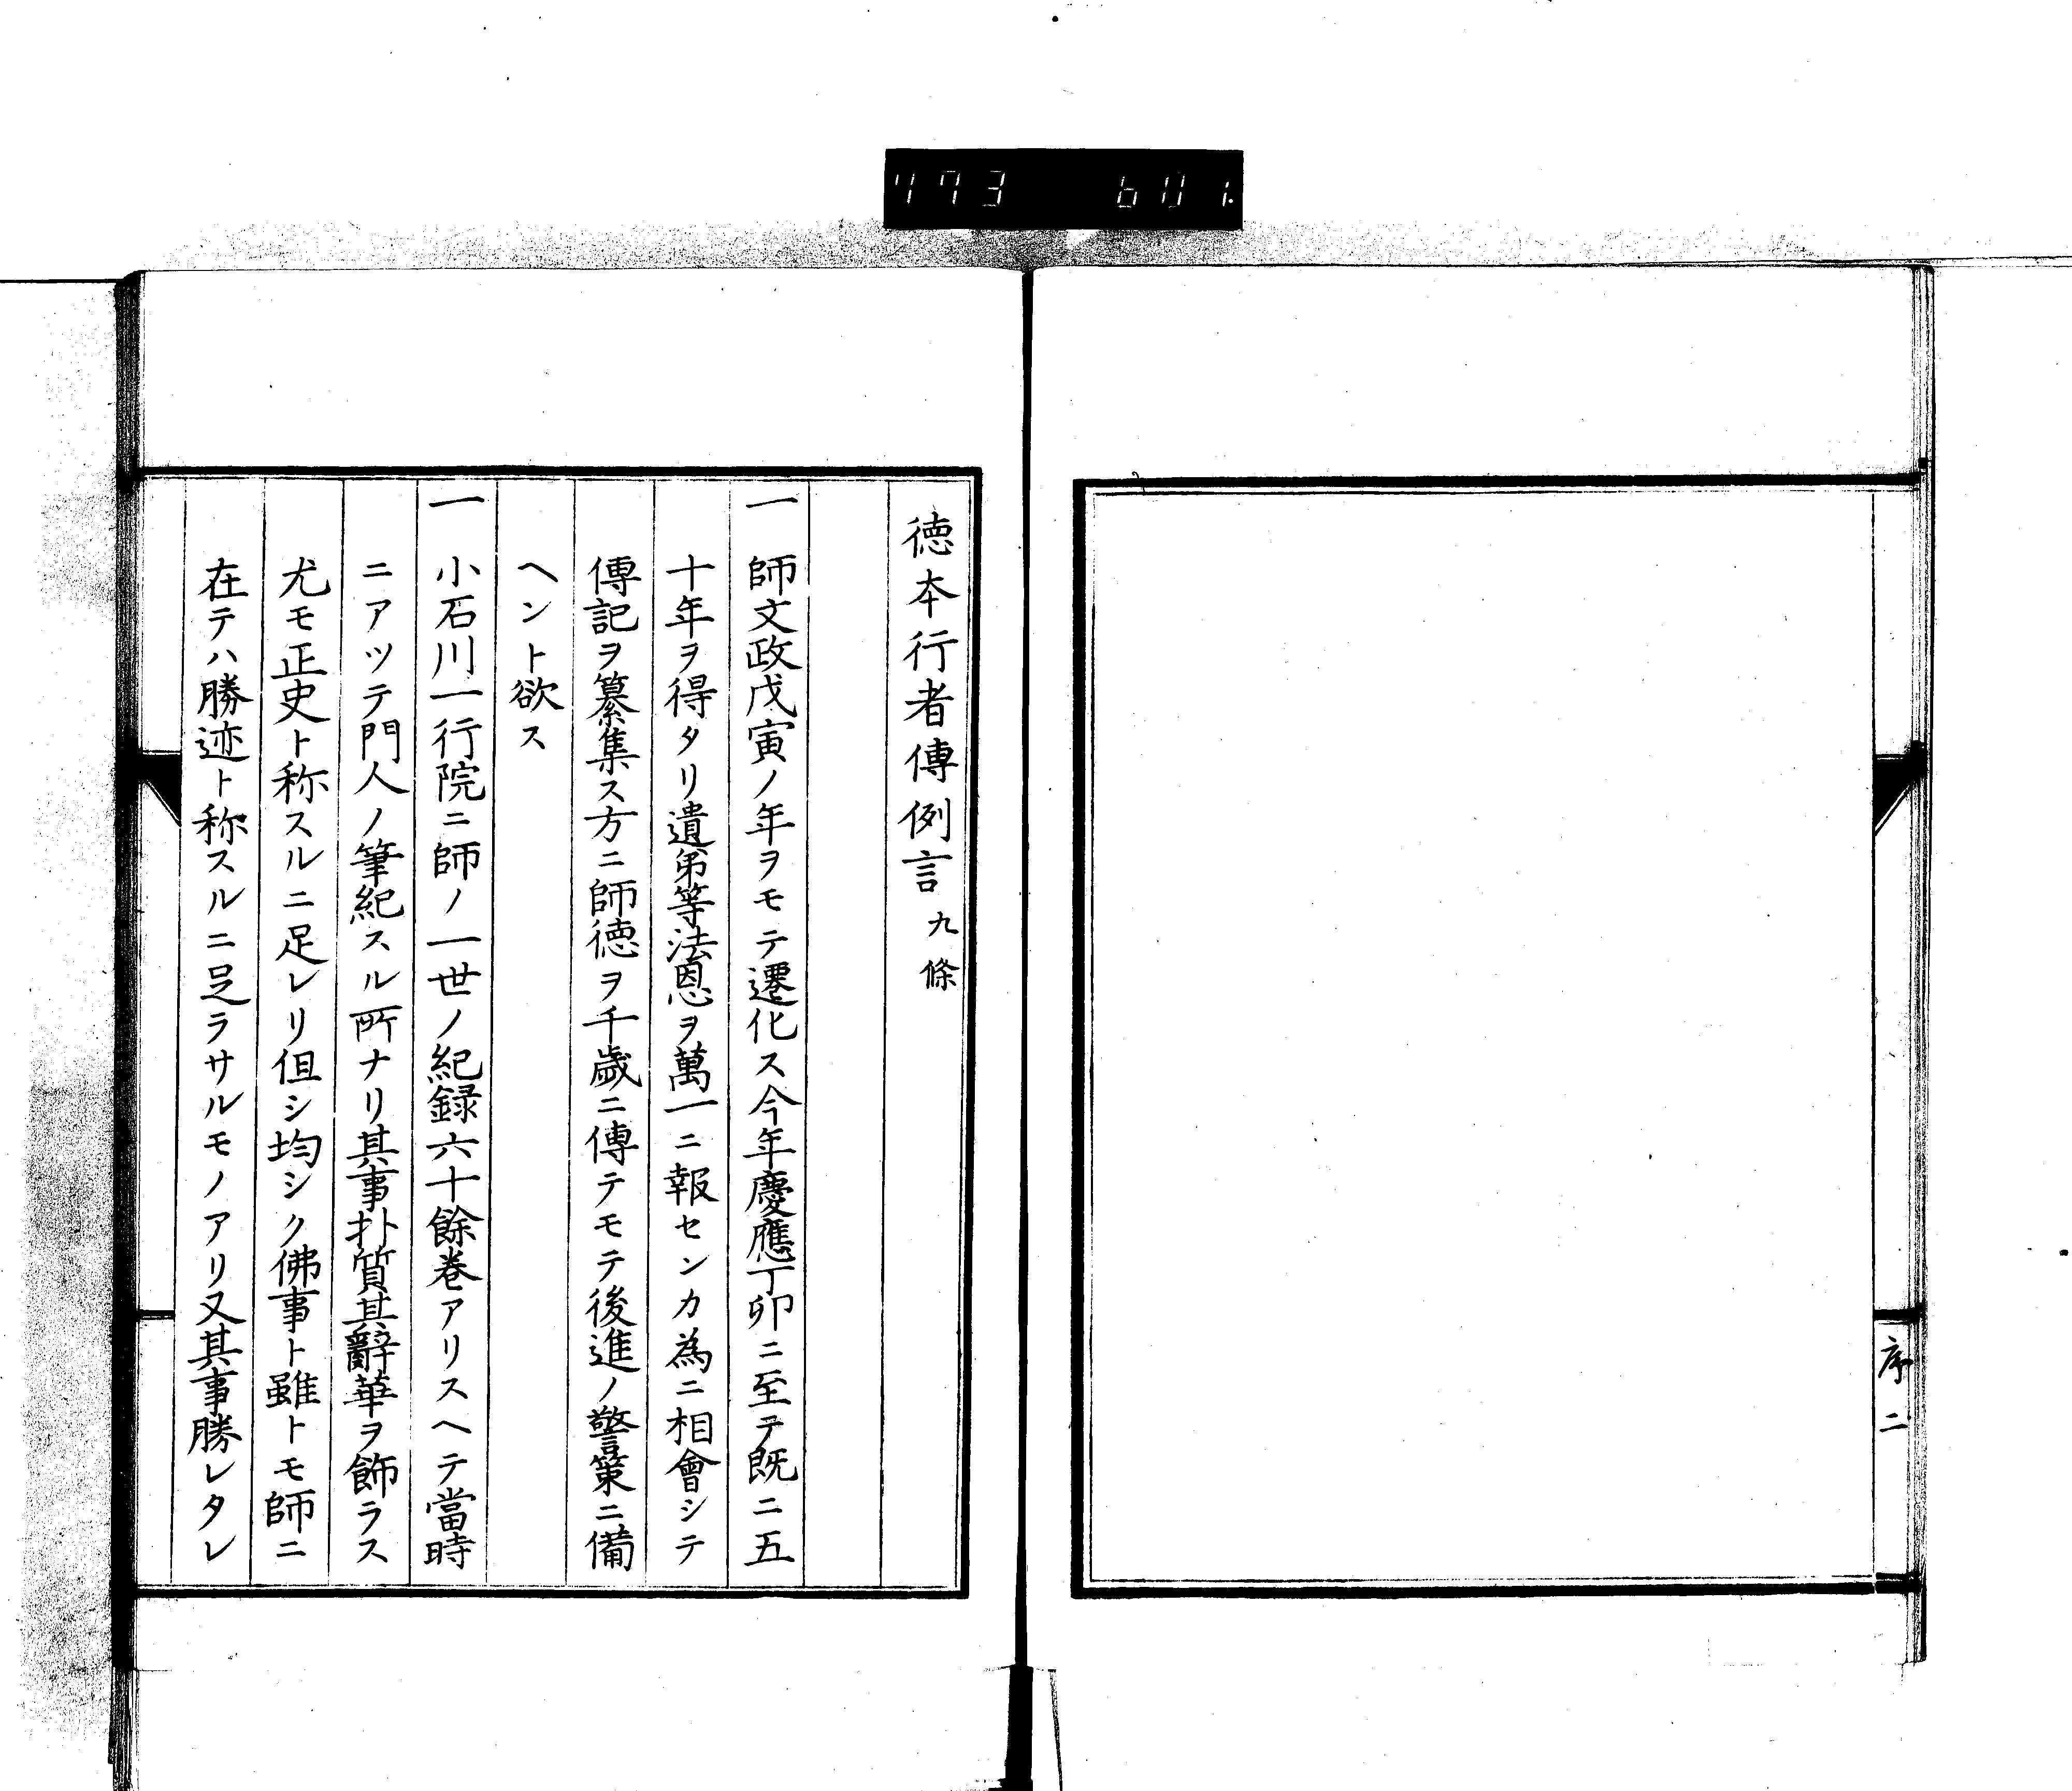 473 601.
序二
徳本行者傳例言 九條
一 師文政戊寅ノ年ヲモテ遷化ス今年慶應丁卯ニ至テ既ニ五
十年ヲ得タリ遺第等法恩ヲ萬一ニ報センカ為ニ相會シテ
傳記ヲ纂集ス方ニ師徳ヲ千歳ニ傳テモテ後進ノ警策ニ備
ヘント欲ス
一 小石川一行院ニ師ノ一世ノ紀録六十餘巻アリスヘテ當時
ニアツテ門人ノ筆紀スル所ナリ其事朴質其辭華ヲ飾ラス
尤モ正史ト称スルニ足レリ但シ均シク佛事ト雖トモ師ニ
在テハ勝迹ト称スルニ足ラサルモノアリ又其事勝レタレ